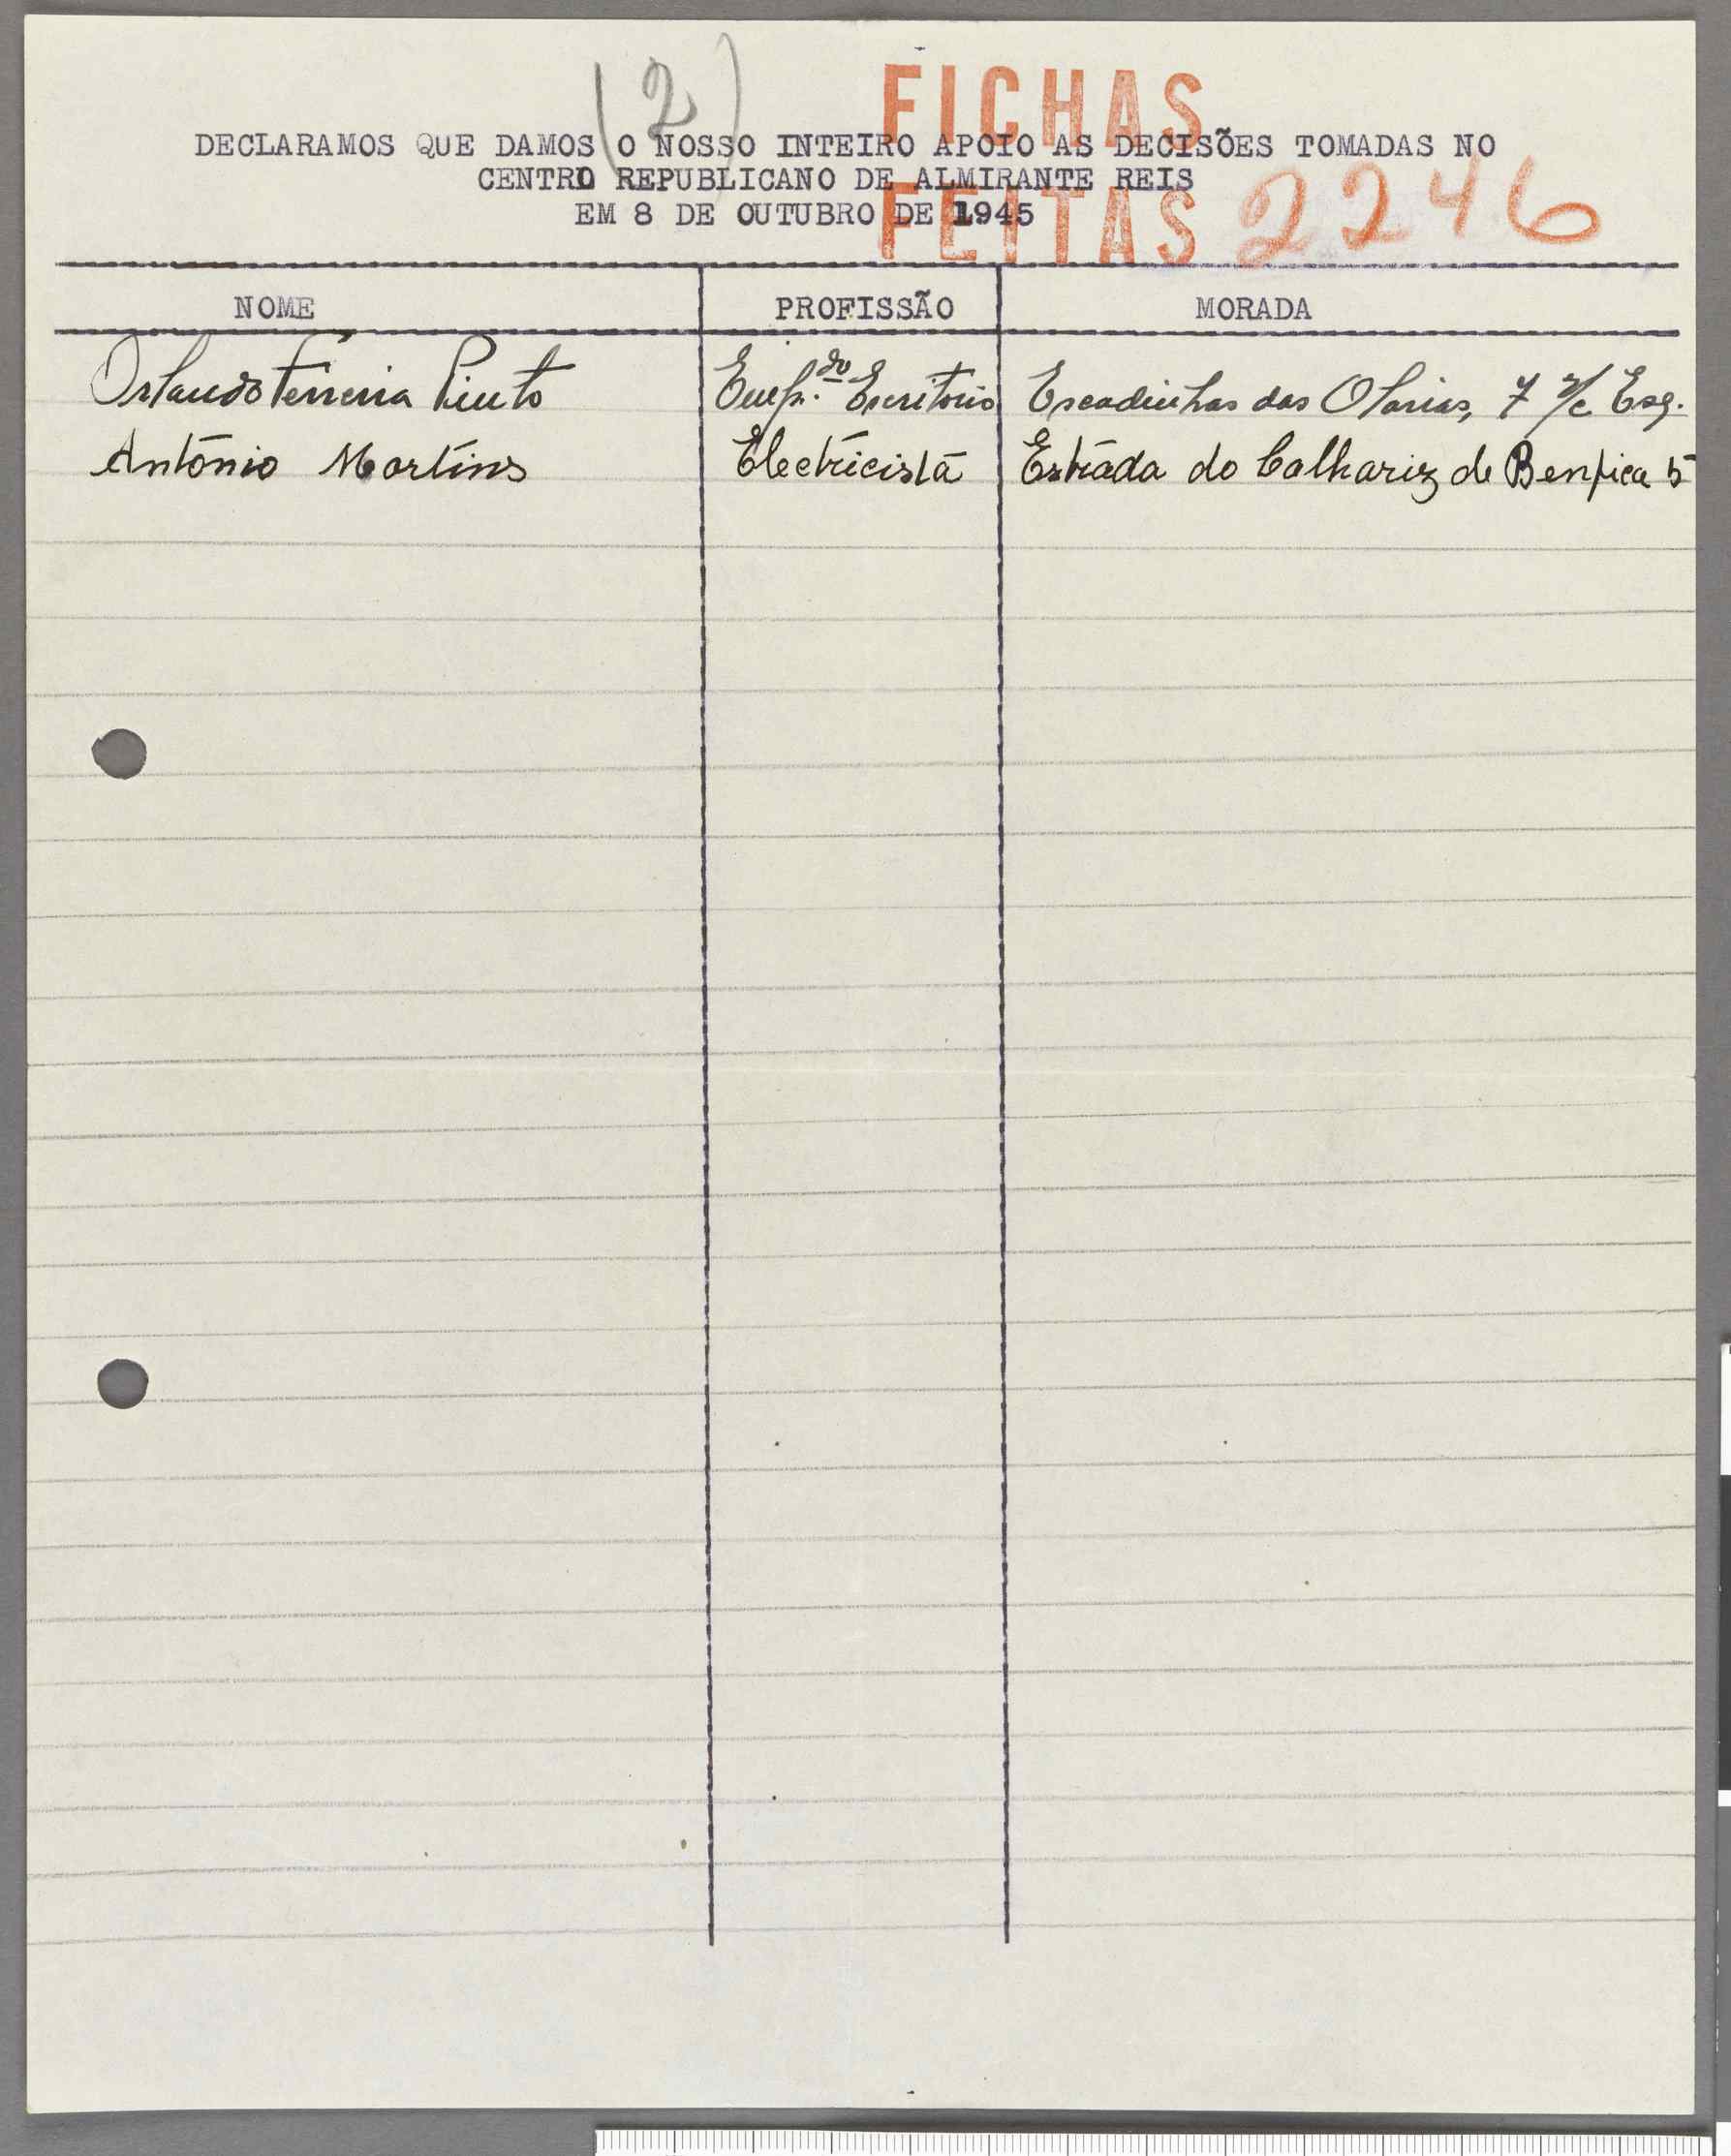 (2)
FICHAS
DECLARAMOS QUE DAMOS O NOSSO INTEIRO APOIO AS DECISÕES TOMADAS NO
CENTRO REPUBLICANO DE ALMIRANTE REIS
FEITAS 2246
EM 8 DE OUTUBRO DE 1945
NOME PROFISSÃO MORADA
Orlando Ferreira Pinto Emp.do Escritorio Escadinhas das Olarias, 7 r/c Esq.
António Martins Electricista Estrada do Calhariz de Benfica 5